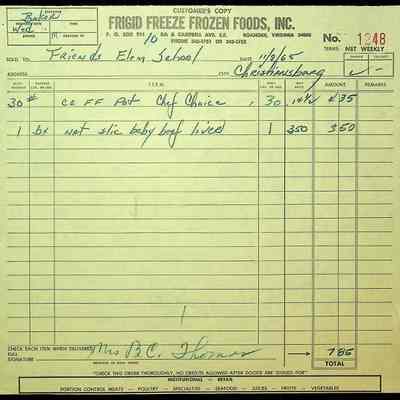 CUSTOMER'S COPY
FRIGID FREEZE FROZEN FOODS, INC.
P. O. BOX & CAMPBELL AVE. S.E. ROANOKE, VIRGINIA
PHONE OR
No. 1348
TERMS: NET WEEKLY
Baker
Wed
10
SOLD TO Friends Elem School 11/3/65
ADDRESS CITY Christiansburg
ITEM AMOUNT REMARKS
30# CC FF Pot Chef Choice 30 4 35
1 bx Nat slic baby beef liver 1 350 3 50
CHECK EACH ITEM WHEN DELIVERED
FULL SIGNATURE Mrs B.C. Thomas
7 85
TOTAL
"CHECK THIS ORDER THOROUGHLY, NO CREDITS ALLOWED AFTER GOODS ARE SIGNED FOR"
INSTITUTIONAL - RETAIL
PORTION CONTROL MEATS - POULTRY - SPECIALTIES - SEAFOOD - JUICES - FRUITS - VEGETABLES